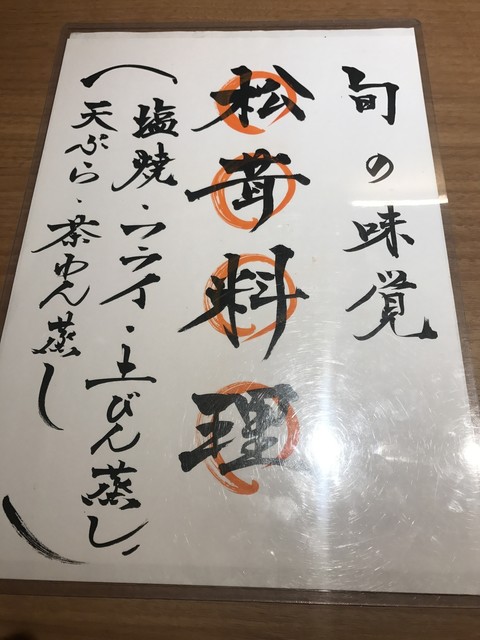 旬の味覚
松茸料理
(塩焼・フライ・土びん蒸し、
天ぷら・茶わん蒸し)